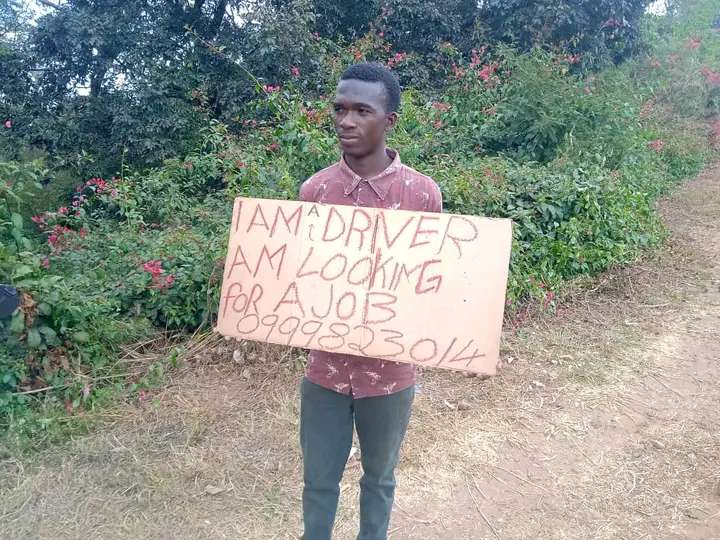 I AM A DRIVER
i AM LOOKING
FOR A JOB
0999823014